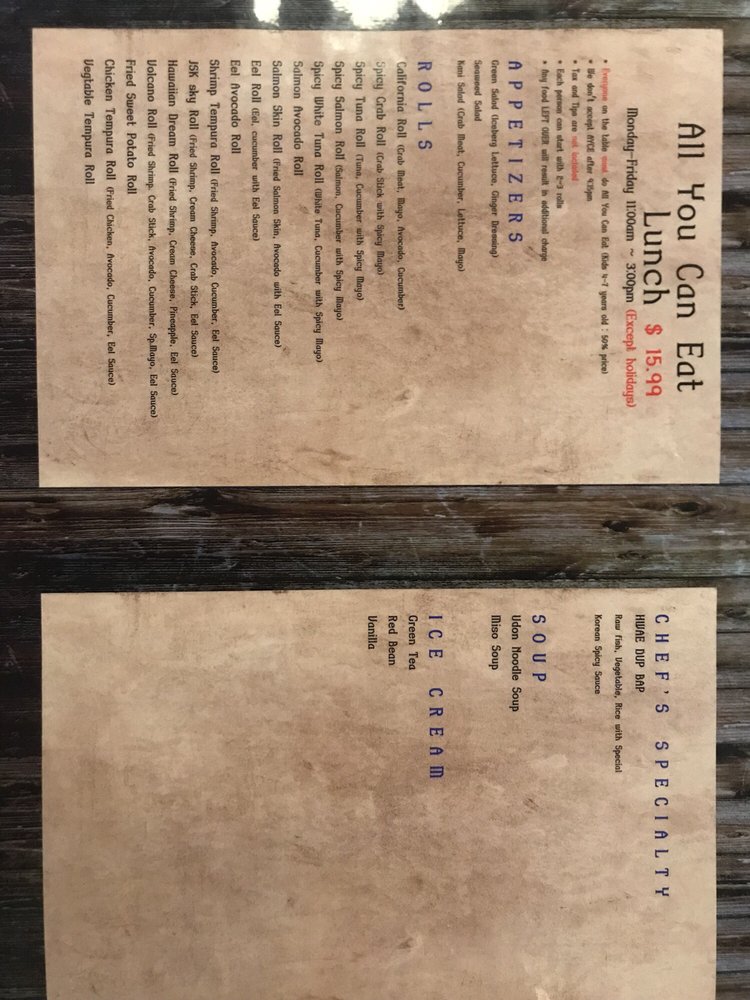 All You Can Eat
Lunch $ 15.99
Monday-Friday 11:00am ~ 3:00pm (Except holidays)
* Everyone on the table must do All You Can Eat (Kids 4~7 years old : 50% price)
* We don't accept AYCE after
* Tax and Tips are not included
* Each person can start with 2~3 rolls
* Any food LEFT OVER will result in additional charge
APPETIZERS
Green Salad (Iceberg Lettuce, Ginger Dressing)
Seaweed Salad
Kani Salad (Crab Meat, Cucumber, Lettuce, Mayo)
ROLLS
California Roll (Crab Meat, Mayo, Avocado, Cucumber)
Spicy Crab Roll (Crab Stick with Spicy Mayo)
Spicy Tuna Roll (Tuna, Cucumber with Spicy Mayo)
Spicy Salmon Roll (Salmon, Cucumber with Spicy Mayo)
Spicy White Tuna Roll (White Tuna, Cucumber with Spicy Mayo)
Salmon Avocado Roll
Salmon Skin Roll (Fried Salmon Skin, Avocado with Eel Sauce)
Eel Roll (Eel, cucumber with Eel Sauce)
Eel Avocado Roll
Shrimp Tempura Roll (Fried Shrimp, Avocado, Cucumber, Eel Sauce)
JSK sky Roll (Fried Shrimp, Cream Cheese, Crab Stick, Eel Sauce)
Hawaiian Dream Roll (Fried Shrimp, Cream Cheese, Pineapple, Eel Sauce)
Volcano Roll (Fried Shrimp, Crab Stick, Avocado, Cucumber, Sp.Mayo, Eel Sauce)
Fried Sweet Potato Roll
Chicken Tempura Roll (Fried Chicken, Avocado, Cucumber, Eel Sauce)
Vegtable Tempura Roll
CHEF'S SPECIALTY
HWAE DUP BAP
Raw Fish, Vegetable, Rice with Special
Korean Spicy Sauce
SOUP
Udon Noodle Soup
Miso Soup
ICE CREAM
Green Tea
Red Bean
Vanilla